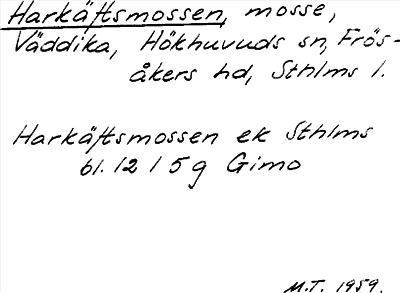 Harkäftsmossen, mosse,
Väddika, Hökhuvuds sn, Frös-
åkers hd, Sthlms l.
Harkäftsmossen ek Sthlms
bl. 12 I 5g Gimo
M.T. 1959.